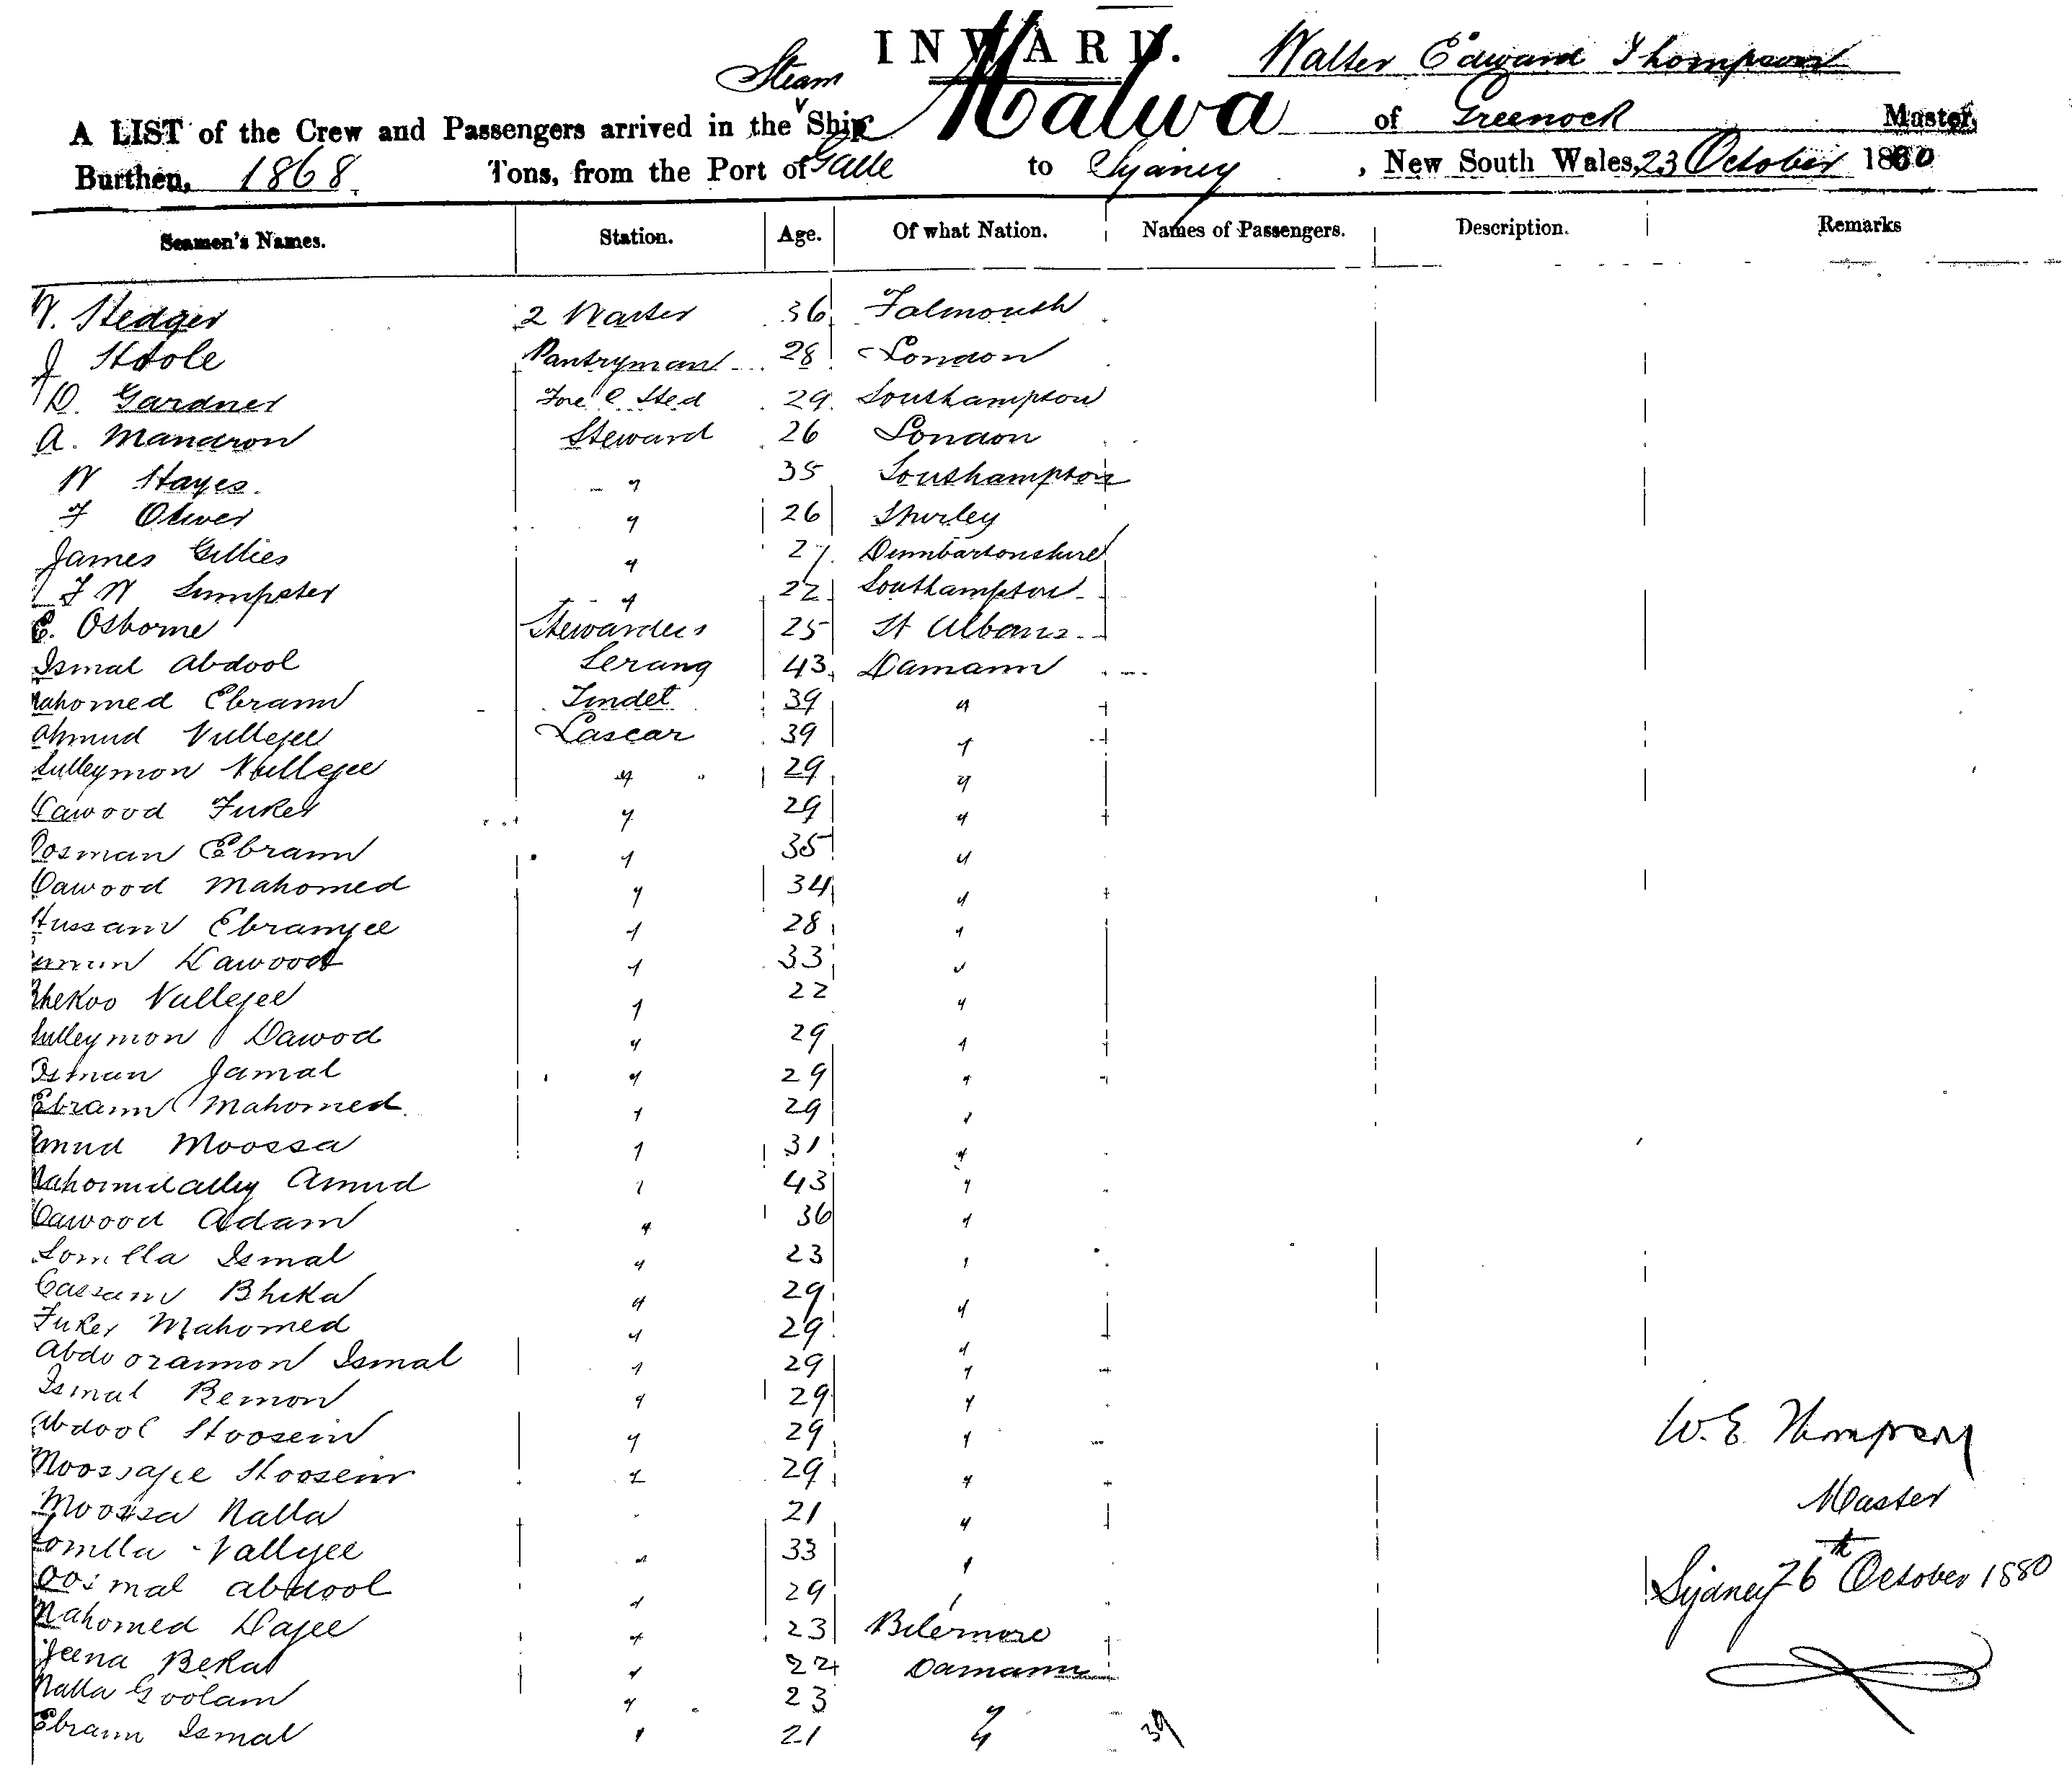 INWARD.
Walter Edward Thompson
Steam
A LIST of the Crew and Passengers arrived in the Ship Malwa of Greenock Master,
Burthen, 1868 Tons, from the Port of Galle to Sydney, New South Wales, 23 October 1880
Seamen's Names. Station. Age. Of what Nation. Names of Passengers. Description. Remarks
W. Hedger 2 Waiter 36 Falmouth
J Hoole Pantryman 28 London
D. Gardner Fore C Sted 29 Southampton
A. Mandron Steward 26 London
W Hayes " 35 Southampton
F Oliver " 26 Shirley
James Gillies " 27 Dumbartonshire
F W Sumpster " 22 Southampton
E. Osborne Stewardess 25 St Albans
Ismal Abdool Serang 43 Damann
Mahomed Ebram Tindel 39 "
Ahmud Vullejee Lascar 39 "
Sulleymon Vullejee " 29 "
Dawood Fuker " 29 "
Oosman Ebram " 35 "
Dawood Mahomed " 34 "
Hussam Ebramjee " 28 "
Dawood " 33 "
Bhekoo Vallejee " 22 "
Sulleymon Dawod " 29 "
Osman Jamal " 29 "
Ebram Mahomed " 29 "
Amud Moossa " 31 "
Mahomedalley Amud " 43 "
Dawood Adam " 36 "
Somlla Ismal " 23 "
Cassam Bhika " 29 "
Fuker Mahomed " 29 "
Abdooramon Ismal " 29 "
Ismal Remon " 29 "
Abdool Hoosein " 29 "
Moossajee Hoosein " 29 "
Moossa Nalla 21 "
Somlla Vallejee " 33 "
Oosmal Abdool " 29 "
Mahomed Dajee " 23 Bilemore
Jeena Beka " 22 Damann
Nalla Goolam " 23 "
Ebram Ismal " 21 " 39
W. E. Thompson
Master
Sydney 26th October 1880